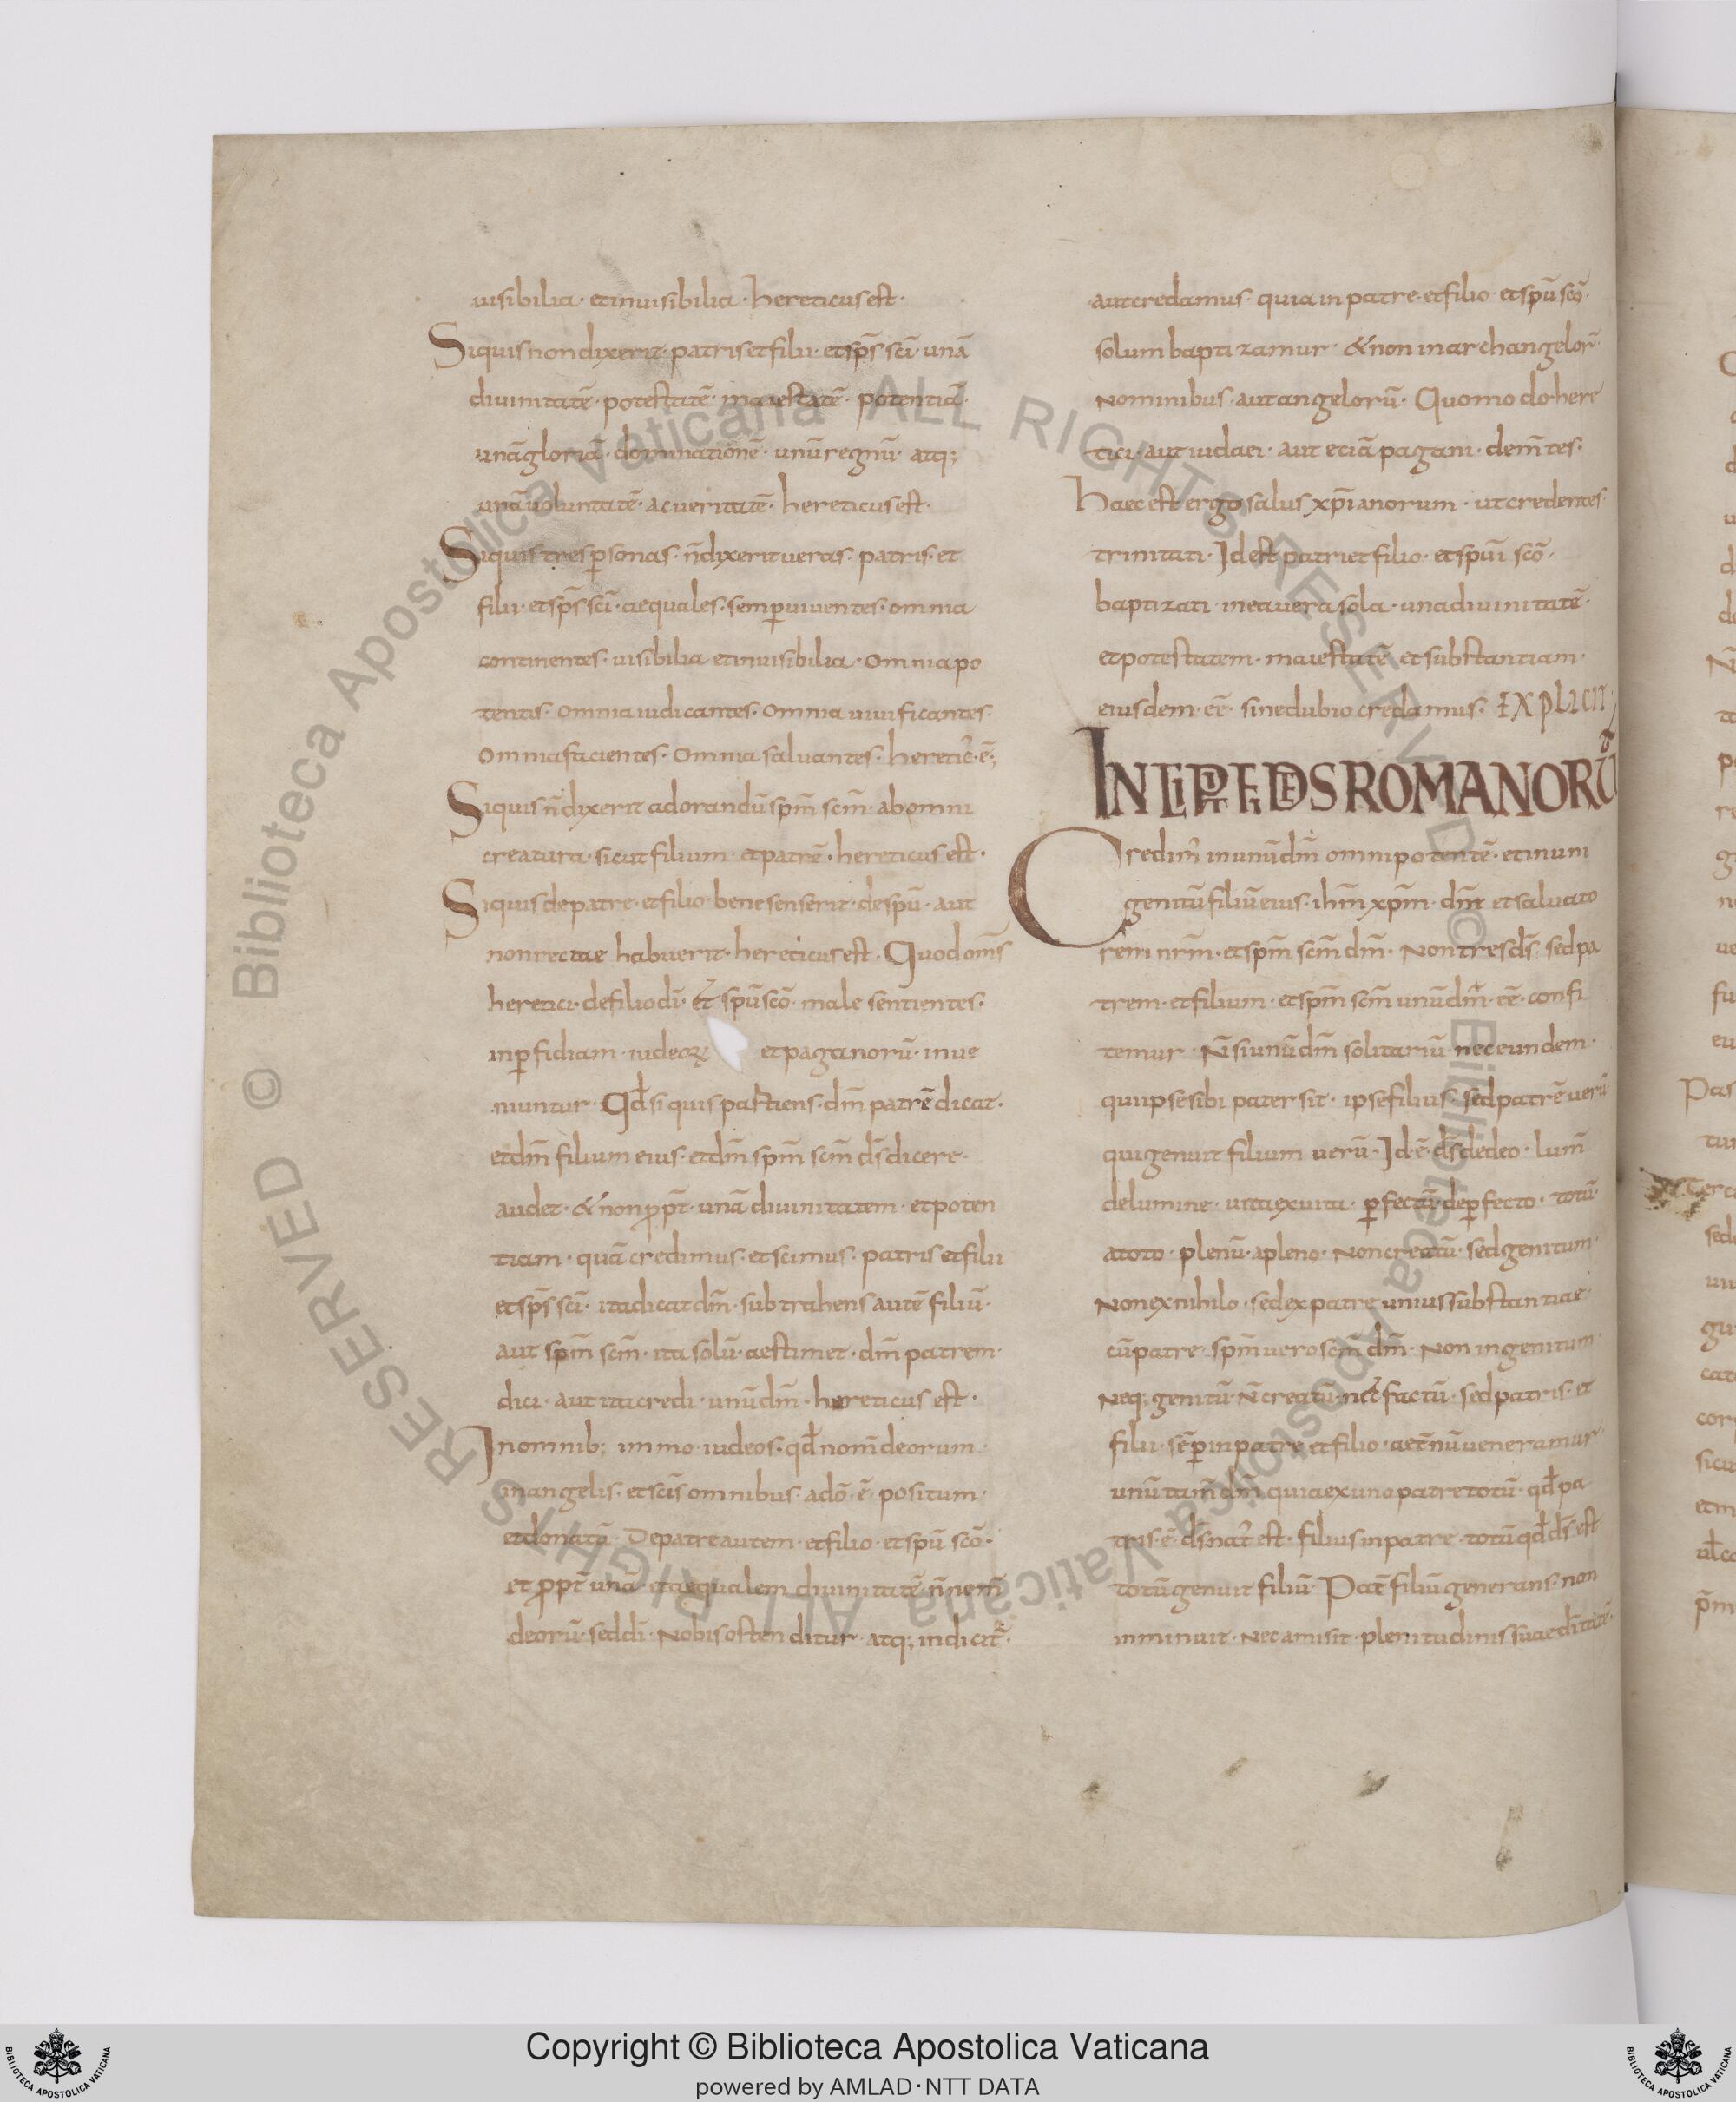 uisibilia· etinuisibilia· hereticusest·
Siquisnondixerit· patrisetfilii· etsp̄s sc̄i· unā
diuinitatē· potestatē· maiestatē· potentiā·
unāgloriā· dominationē· unūregnū· atq;
unāuoluntatē· acueritatē· hereticusest·
Siquistresp̱sonas· n̄dixeritueras· patris· et
filii· etsp̄s sc̄i· aequales· semp̱uiuentes· omnia
continentes· uisibilia etinuisibilia· omniapo
tentis· omniaiudicantes· omnia uiuificantes·
omniafacientes· omnia saluantes· hereticꝰ· ē·;
Siquisn̄dixerit adorandūsp̄m sc̄m· abomni
creatura· sicutfilium· etpatrē· hereticusest·
Siquisdepatre· etfilio· benesenserit· despū· aut
nonrectae habuerit· hereticusest· Quodom̄s
heretici· defiliodī· et spūscō· male sentientes·
inp̱fidiam· iudeoꝝ etpaganorū· inue
niuntur· Qd̄si quis pastiens· dm̄ patrē dicat·
etdm̄ filium eius· etdm̄ sp̄m sc̄m ds̄dicere·
audet· &non ꝓpt̄· unā diuinitatem· etpoten
tiam· quā credimus· etscimus· patris etfilii
etsp̄s sc̄i· itadicatdm̄· subtrahens autē filiū·
aut sp̄m sc̄m· ita solū· aestimet· dm̄ patrem·
dici· aut ita credi· unūdm̄· hereticus est·
Inomnib; immo iudeos· qd̄ nom̄deorum·
inangelis· etsc̄is omnibus· adō· ē· positum·
etdonatū· Depatreautem· etfilio· etspū scō·
et ꝓpt̄ unā· etaequalem diuinitatē· n̄nom̄
deorū· seddī· Nobisostenditur· atq; indicit᷑·
autcredamus· quia inpatre· etfilio· etspū scō·
solum baptizamur· &non inarchangelor̄·
Nominibus· autangelorū· Quomodo· here
tici· aut iudaei· aut eciā pagani· dem̄tes·
Haecest ergo salus xp̄ianorum· utcredentes·
trinitati· Idest patrietfilio· etspūi scō·
baptizati· ineauera sola· unadiuinitatē·
etpotestatem· maiestatē etsubstantiam·
eiusdem· eē· sinedubio credamus· EXPLICIT;
INCIPIT FIDES ROMANORŪ
Credimꝰ inunūdm̄ omnipotentē· etinuni
genitūfiliūeius· ihm̄ xp̄m· dm̄ etsaluato
rem nr̄m· etsp̄m sc̄m dm̄· Non tres ds̄· sedpa
trem· etfilium· etsp̄m sc̄m unūdm̄· eē· confi
temur· N̄siunūdm̄ solitariū· neceundem·
quiipsesibi pater sit· ipsefilius· sedpatrē uerū·
quigenuit filium uerū· Id·ē· ds̄dedeo· lum̄
delumine· uitaexuita· p̱fectū· dep̱fecto· totū·
atoto· plenū· apleno· Noncreatū· sedgenitum·
Nonexnihilo· sedexpatre uniussubstantiae·
cūpatre· sp̄m uero sc̄m dm̄· Non ingenitum·
Neq; genitū· N̄creatū· nec factū· sedpatris· et
filii· sēp̱inpatre etfilio· aet̄nūueneramur·
unūtam̄dm̄ quiaexunopatretotū· qd̄pa
tris· ē· ds̄natꝰ est· filiusinpatre· totūqd̄ds̄est
totūgenuit filiū· Pat̄ filiūgenerans· non
inminuit· Nec amisit· plenitudinis suae dīt̄atē·
Copyright © Biblioteca Apostolica Vaticana
powered by AMLAD·NTT DATA